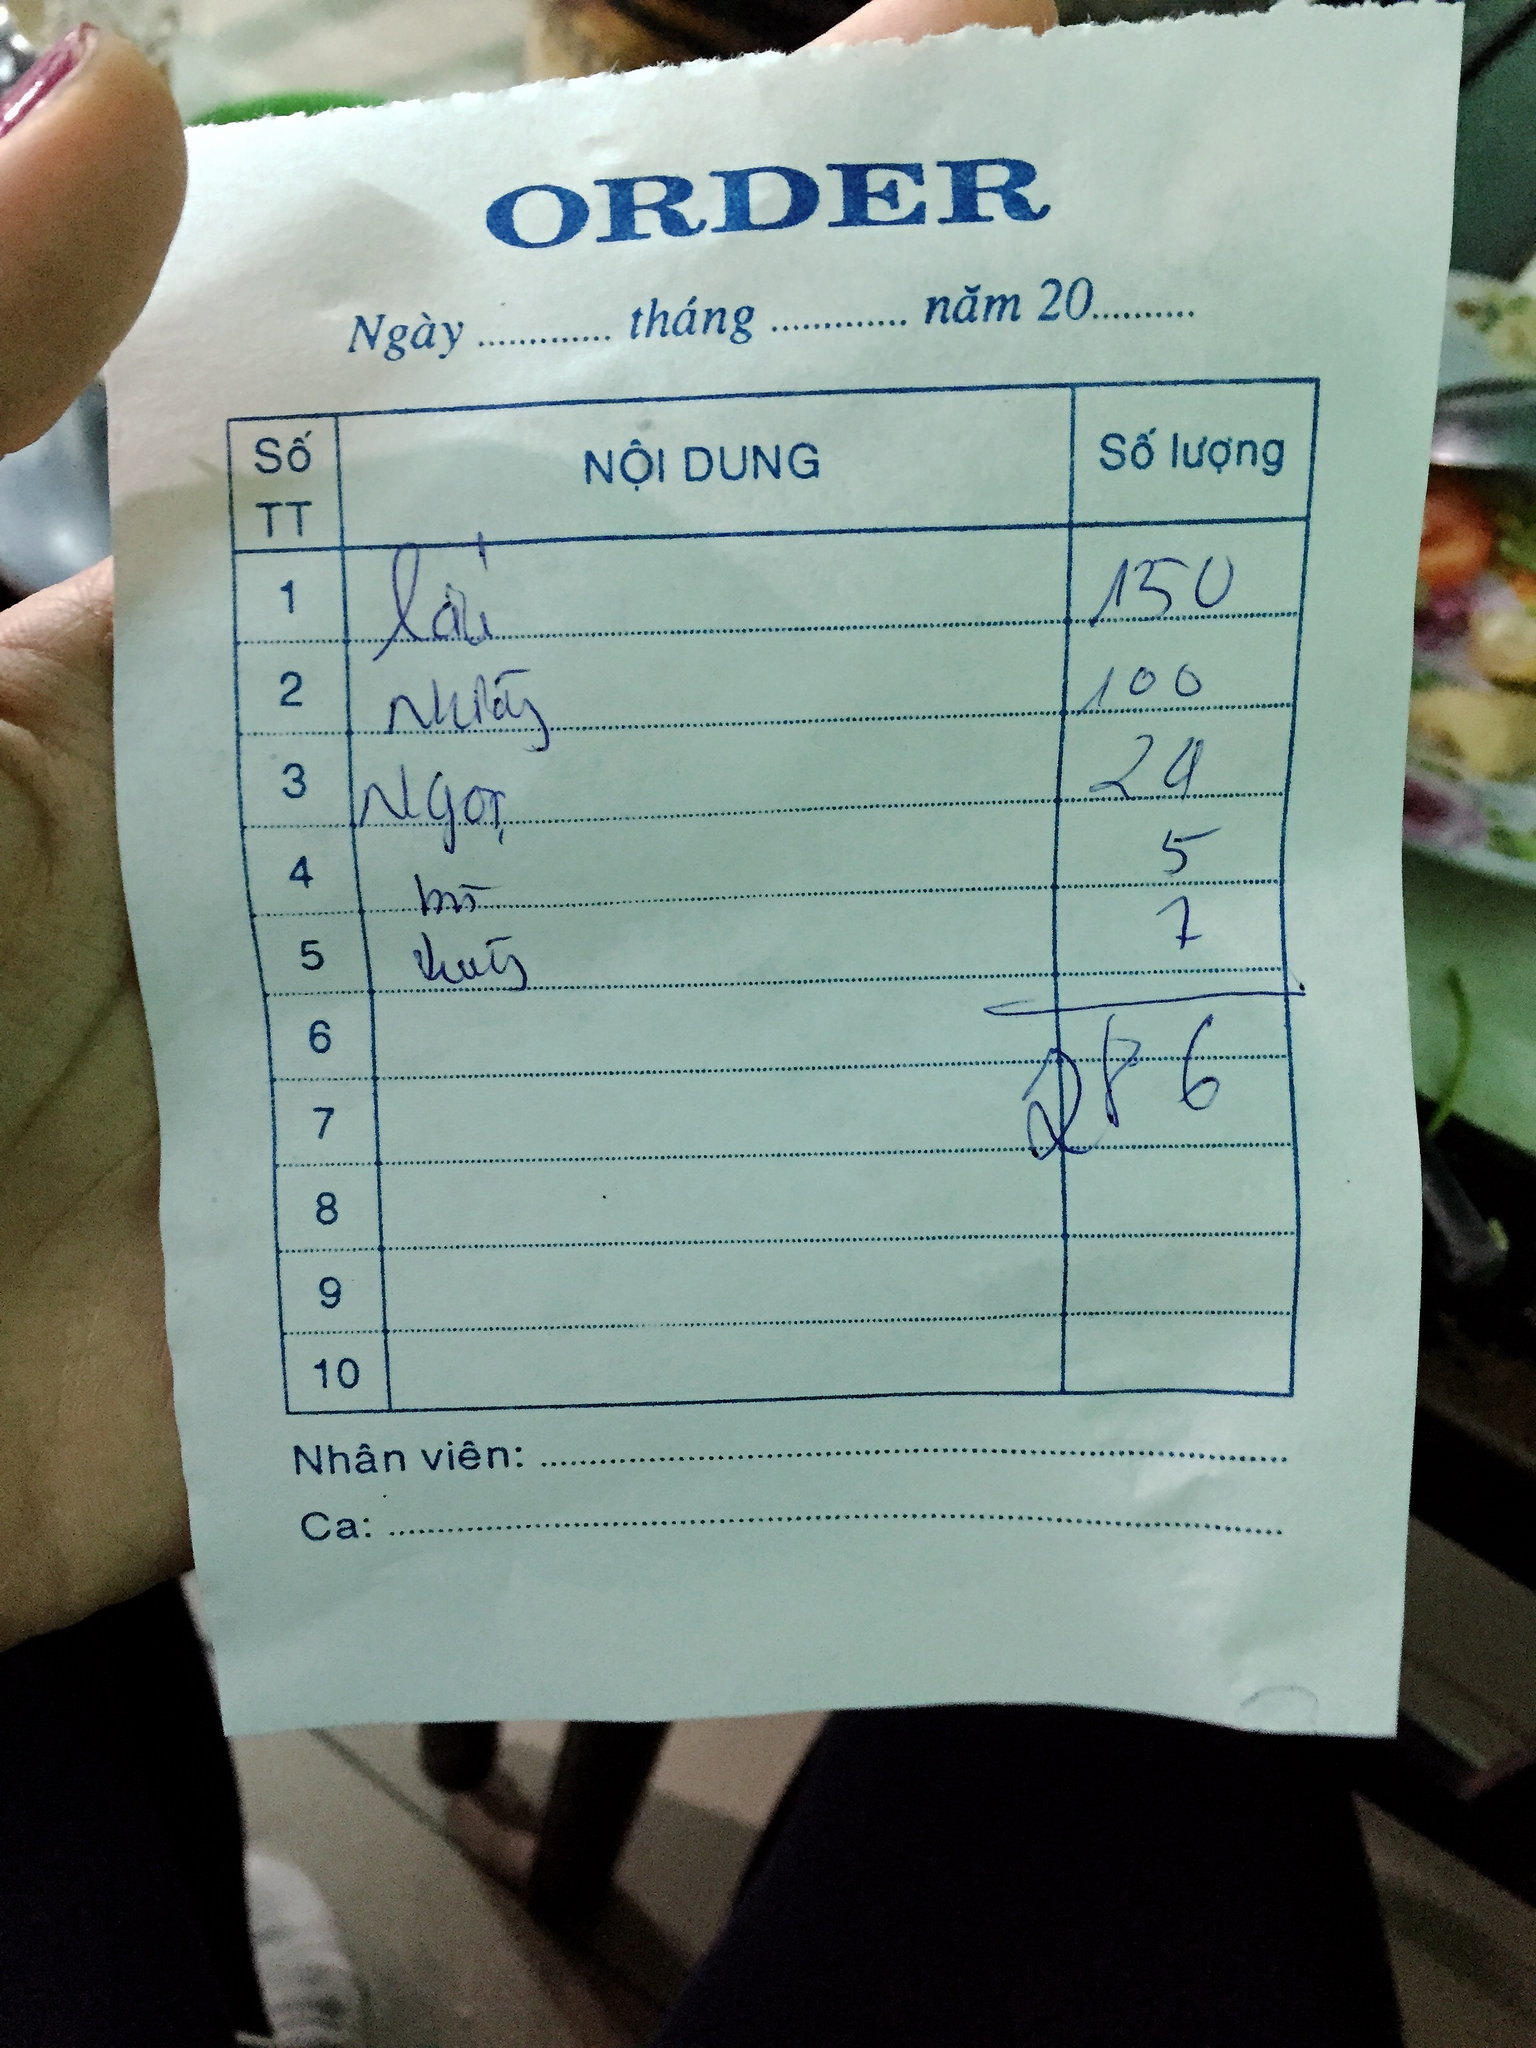 ORDER
Ngày ............ tháng ............ năm 20.........
Số TT NỘI DUNG Số lượng
1 Lẩu 150
2 100
3 Ngọt 24
4 mì 5
5 7
286
6
7
8
9
10
Nhân viên: ............
Ca: ............